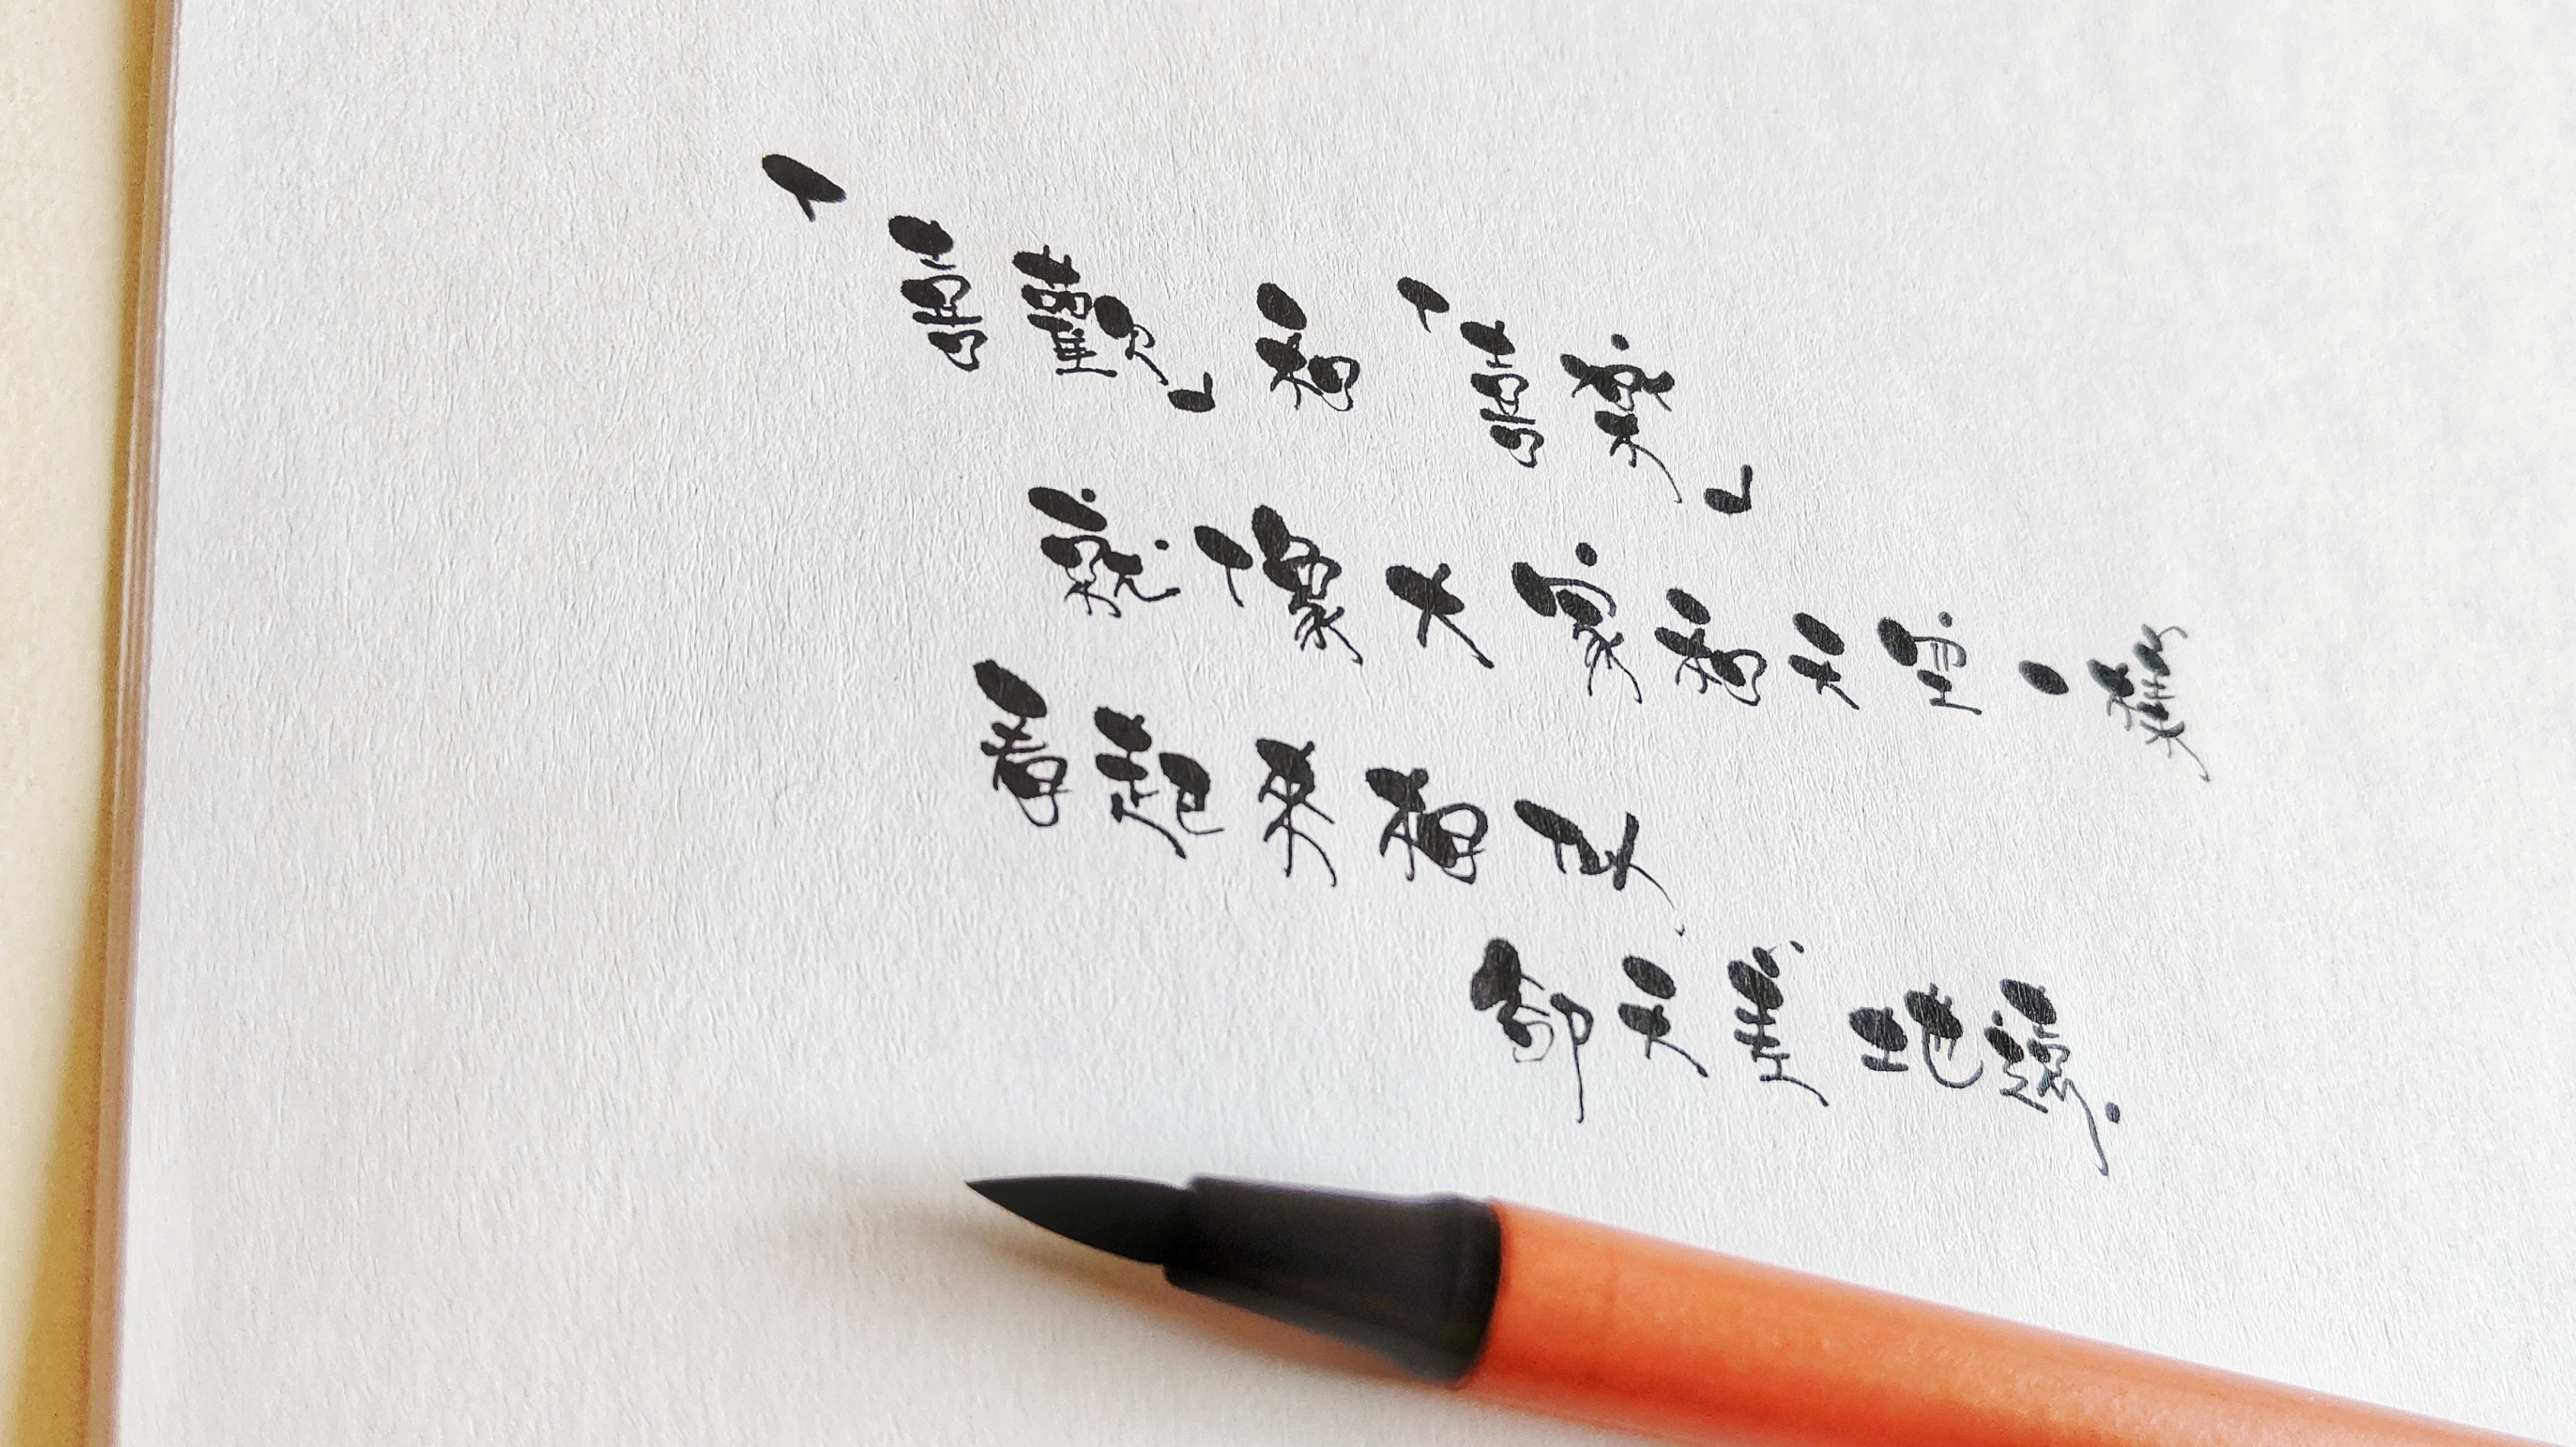 「喜歡」和「喜樂」
就像大家和天空一樣
看起來相似
卻天差地遠.